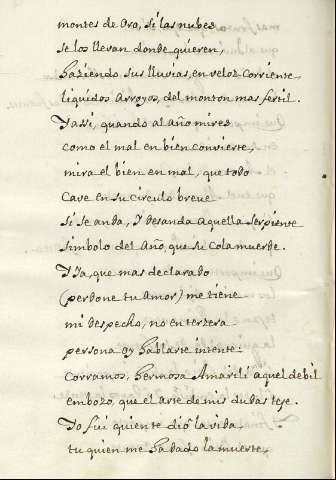 montes de Oro, si las nubes
se los llevan donde quieren,
haziendo sus lluvias, en veloz corriente
liquidos Arroyos, del monton mas fertil.
Y assi, quando al año mires
como el mal en bien convierte,
mira el bien en mal, que todo
cave en su circulo breve
si se anda, y desanda aquella serpiente
simbolo del Año, que su cola muerde.
Y Ya, que mas declarado
(perdone tu Amor) me tiene
mi despecho, no en terzera
persona oy hablarte intente:
corramos, hermosa Amarili aquel debil
embozo, que el arte de mis dudas teje.
Yo fui quien te dio la vida
tu quien me ha dado la muerte,